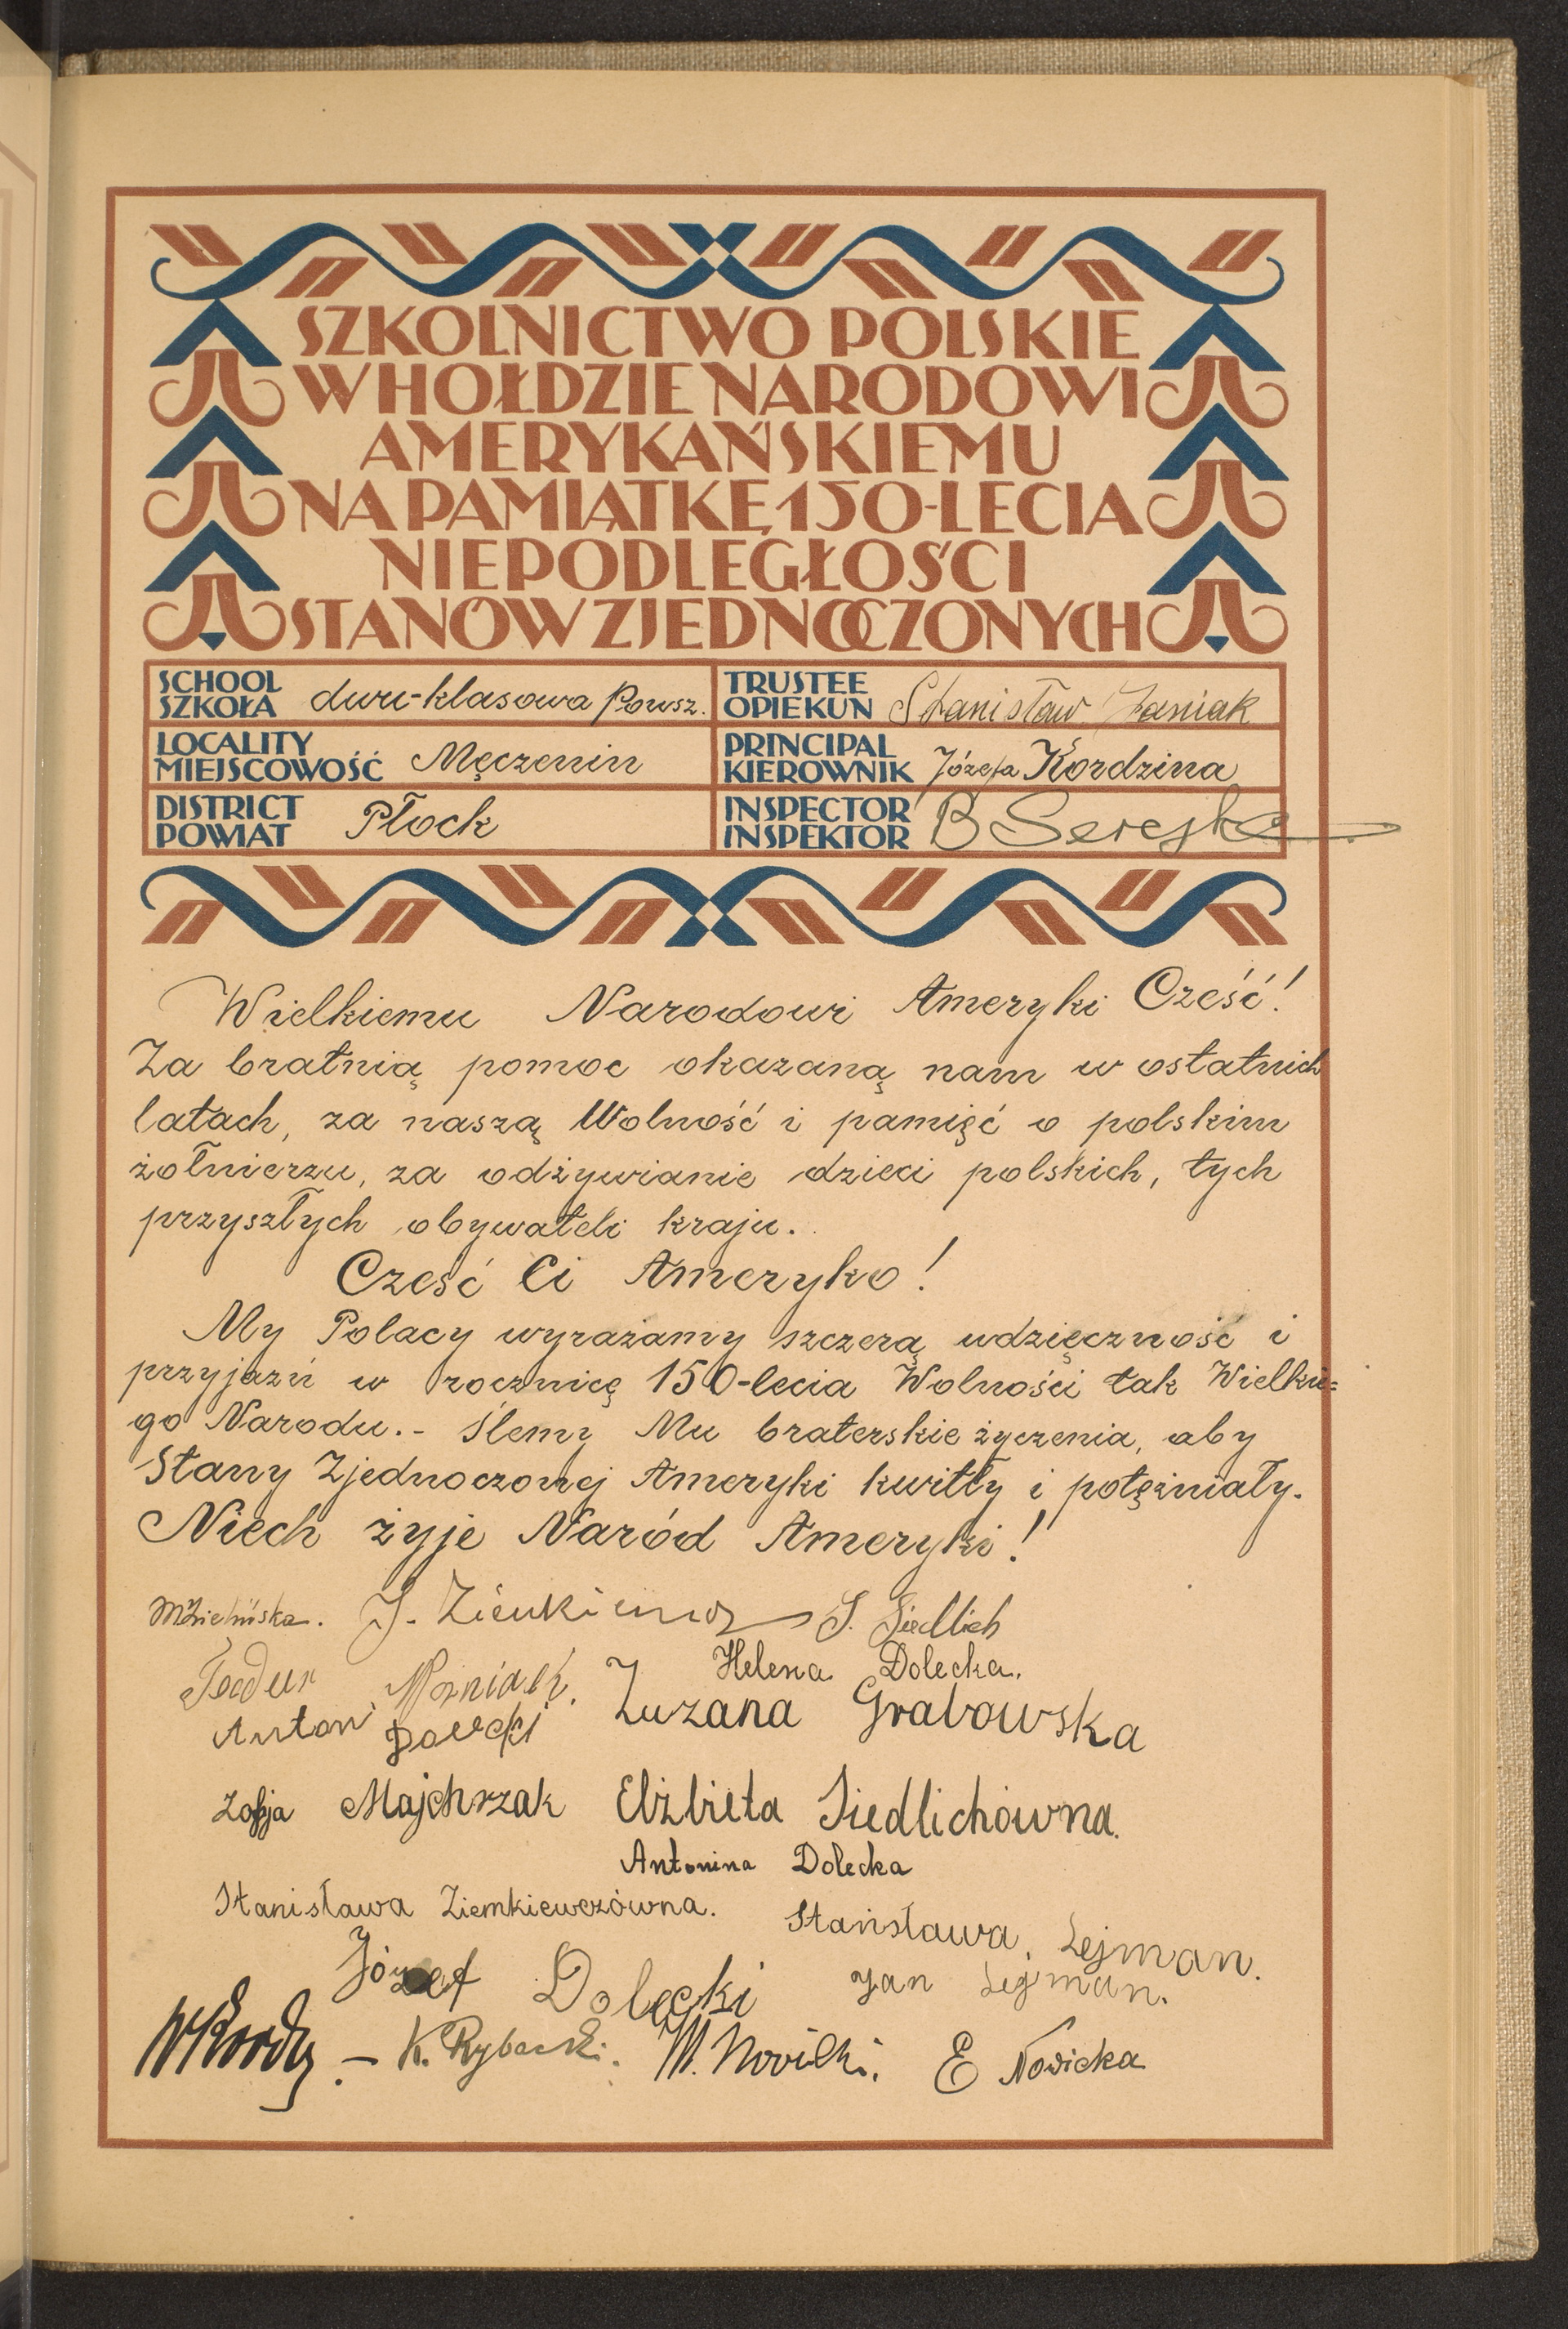 SZKOLNICTWO POLSKIE
W HOŁDZIE NARODOWI
AMERYKAŃSKIEMU
NA PAMIĄTKĘ 150-LECIA
NIEPODLEGŁOŚCI
STANÓW ZJEDNOCZONYCH
SCHOOL
SZKOŁA dwu-klasowa Powsz.
TRUSTEE
OPIEKUN Stanisław Jasniak
LOCALITY
MIEJSCOWOŚĆ Męczenin
PRINCIPAL
KIEROWNIK Józefa Kordzina
DISTRICT
POWIAT Płock
INSPECTOR
INSPEKTOR B Serejko
Wielkiemu Narodowi Ameryki Cześć!
Za bratnią pomoc okazaną nam w ostatnich
latach, za naszą Wolność i pamięć o polskim
żołnierzu, za odżywianie dzieci polskich, tych
przyszłych obywateli kraju.
Cześć Ci Ameryko!
My Polacy wyrażamy szczerą wdzięczność i
przyjaźń w rocznicę 150-lecia Wolności tak Wielkie=
go Narodu.- Ślemy Mu braterskie życzenia, aby
Stany Zjednoczonej Ameryki kwitły i potężniały.
Niech żyje Naród Ameryki!
MZielińska. J. Zienkiewicz S. Siedlich
Helena Dolecka.
Antoni Dolecki Zuzana Grabowska
Zofja Majchrzak Elżbieta Siedlichówna.
Antonina Dolecka
Stanisława Ziemkiewczówna.
Stanisława, Lejman.
Józef Dolecki Jan Lejman.
K. Rybacki. M. Nowicki. E Nowicka